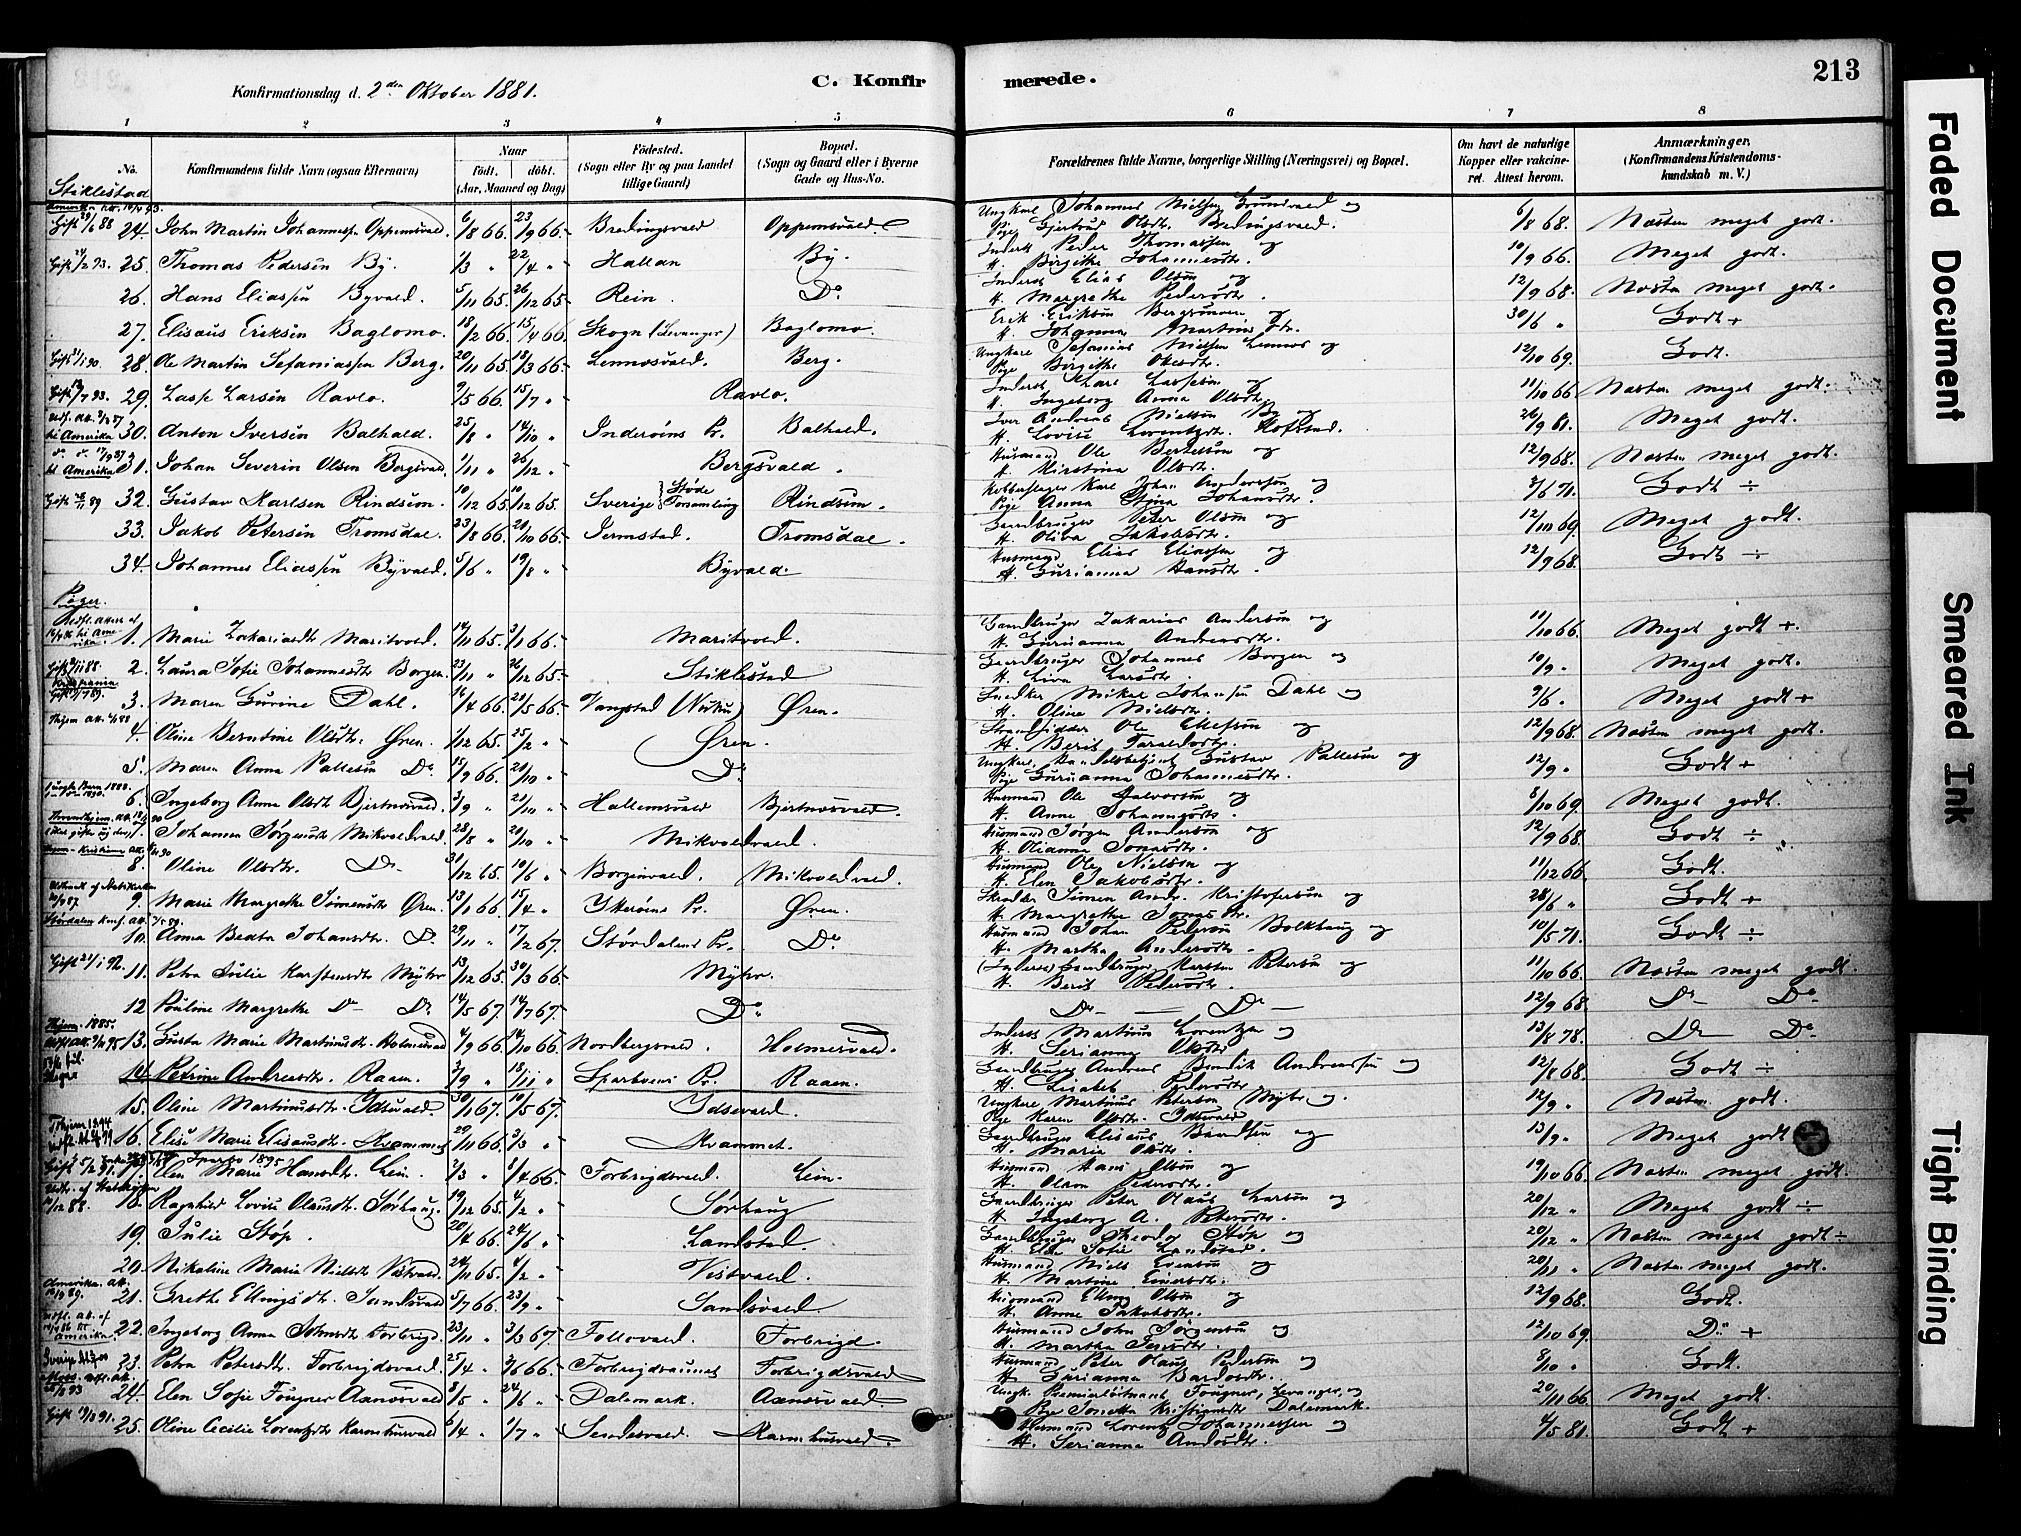 213
C. Konfir merede.
Konfirmationsdag d. 2den Oktober 1881.
1 2 3 4 5 6 7 8
No. Konfirmandens fulde Navn (ogsaa Efternavn) Naar født. døbt. (Aar, Maaned og Dag) Fødested. (Sogn eller By og paa Landet tillige Gaard) Bopæl. (Sogn og Gaard eller i Byerne Gade og Hus-No. Forældrenes fulde Navne, borgerlige Stilling (Næringsvei) og Bopæl. Om havt de naturlige Kopper eller vakcineret. Attest herom. Anmærkninger, (Konfirmandens Kristendomskundskab m. V.)
Stiklestad
24. John Martin Johannessen Oppemsvald. 6/8 66. 23/9 66. Oppemsvald. Ungkarl Johannes Nielsen og Pige Gjertrud Olsdt. 6/8 68. Næsten meget godt.
25. Thomas Pedersen By. 1/3 " 22/4 " Hallan By. Inderst Peder Thomassen og H. Birgithe Johannesdt. 10/9 66. Meget godt.
26. Hans Eliassen Byvald. 5/11 65. 26/12 65. Rein. Do. Inderst Elias Olsen og H. Margrethe Pedersdtr. 12/9 68. Næsten meget godt.
27. Elisæus Eriksen Baglomo. 18/2 66. 15/4 66. Skogn (Levanger) Baglomo. Erik Eriksen og H. Johanna Martinsdtr. 30/6 " Godt +
28. Ole Martin Sefaniassen Berg. 20/11 65. 18/3 66. Lennesvald. Berg. Ungkarl Sefanias Nielsen Lennes og Pige Birgithe Olsdt. 12/10 69. Godt.
29. Lasse Larsen Ravlo. 9/5 66. 15/7 " Ravlo. Inderst Lars Larssen og H. Ingeborg Anna Olsdt. 11/10 66 Næsten meget godt.
30. Anton Iversen Balhald. 25/8 " 14/10 " Inderøens Pr. Balhald. Iver Andreas Nielsen By og H. Lovise Lorentzdt. Hofstad. 26/9 81. Meget godt.
31. Johan Severin Olsen Bergsvald. 1/11 " 26/12 " Bergsvald. Husmand Ole Bertelsen og H. Kirstina Olsdt. 12/9 68. Næsten meget godt.
32. Gustav Karlsen Rindsem. 10/12 65. 10/12 65. Sverige Støde Forsamling Rindsem. Kobberslager Karl Johan Andersson og Pige Anna Stina Johansdt. 7/6 71. Godt ÷
33. Jakob Petersen Tromsdal. 23/8 66. 20/10 66. Jermstad. Tromsdal. Gaardbruger Peter Olsen og H. Oliva Jakobsdt. 12/10 69. Meget godt.
34. Johannes Eliassen Byvald. 5/6 " 19/8 " Byvald. Husmand Elias Eliassen og H. Gurianna Hansdtr. 12/9 68. Godt ÷
Piger.
1. Marie Zakariasdt. Maritvold. 14/11 65. 3/1 66. Maritvold. Gaardbruger Zakarias Andersen og H. Gurianna Andreasdtr. 11/10 66. Meget godt +.
2. Laura Sofie Johannesdt. Borgen. 23/11 " 26/12 65. Stiklestad Gaardbruger Johannes Borgen og H. Liva Larsdt. 10/9 " Meget godt.
3. Maren Gurine Dahl. 16/4 66. 21/5 66. Vangstad Øren. Snedker Mikal Johansen Dahl og H. Oline Nielsdt. 9/6 " Meget godt +
4. Oline Berntine Olsdt. Øren. 1/12 65. 25/2 " Øren. Strandsidder Ole Ellefsen og H. Berit Taraldsdtr. 12/9 68. Næsten meget godt.
5. Maren Anna Pallesen Do 15/9 66. 20/10 " Do Ungkarl Handelsbetjent Gustav Pallesen og Pige Gurianna Johannesdtr. 12/9 " Godt +
6. Ingeborg Anna Olsdt. Bjertnesvald. 3/9 " 21/10 " Hallemsvald Bjertnesvald. Husmand Ole Halvorsen og H. Anne Johannesdtr. 8/10 69. Meget godt.
7. Johanna Jørgensdt. Mikvoldvald. 28/8 " 20/10 " Mikvoldvald. Husmand Jørgen Andersen og H. Olianna Jonasdt. 12/9 68. Godt ÷
8. Oline Olsdtr. Do 31/12 65. 10/6 " Borgenvald. Mikvoldvald. Husmand Ole Nielsen og H. Elen Jakobsdtr. 11/12 66. Godt.
9. Marie Margrethe Simensdt. Øren. 13/1 66. 15/4 " Ytterøens Pr. Øren. Skrædder Simen Andr. Kristofersen og H. Margrethe Jonasdtr. 28/6 " Godt +
10. Anna Beata Johansdtr. Do 29/11 " 17/2 67. Størdalens Pr. Do Husmand Johan Pedersen Balkhaug og H. Martha Andersdtr. 10/5 71. Godt ÷
11. Petra Julie Karstensdt. Myhr. 13/12 65. 30/3 66. Myhr. Gaardbruger Karsten Petersen og H. Berit Pedersdt. 11/10 66. Næsten meget godt.
12 Pauline Margrethe Do Do 14/5 67. 14/7 67. Do. Do — Do — 12/9 68. Do Do
13. Gusta Marie Martinusdt. Holmesvald 4/9 66. 14/10 66. Nordbergsvald. Holmesvald. Inderst Martinus Lorentzen og H. Serianna Olsdtr. 13/8 78. Do Do
14. Petrine Andreasdt. Raaen. 3/9 " 15/11 " Sparboens Pr. Raaen. Gaardbruger Andreas Bendik Andreassen og H. Lisabet Pedersdt. 12/8 68. Godt ÷
15. Oline Martinusdt. Idsevald. 30/1 67. 10/5 67. Idsevald. Ungkarl Martinus Petersen Myhr og Pige Karen Olsdt. Idsevald. 12/9 " Næsten godt.
16. Elise Marie Elisæusdt. Kvammet 29/11 66. 3/3 " Kvammet. Gaardbruger Elisæus Baardsen og H. Marie Olsdt. 13/9 " Meget godt
17. Elen Marie Hansdt. Lein. 1/3 " 8/4 66. Forbrigdsvald. Lein. Husmand Hans Olsen og H. Olava Pedersdt. 19/10 66. Næsten meget godt.
18. Ragnhild Lovise Olausdt. Sørhaug. 19/12 65. 4/2 " Sørhaug Gaardbruger Peter Olaus Larsen og H. Ingeborg A. Petersdtr. 20/12 " Meget godt ÷
19. Julie Støp. 20/4 66. 24/6 " Landstad. Gaardbruger Theodor Støp og H. Elen Sofie Landstad. 20/12 " Næsten meget godt ÷
20. Nikoline Marie Nielsdt. Vistvald. 24/11 65. 4/2 " Vistvald. Husmand Niels Evensen og H. Martine Einersdtr. 20/11 " Næsten meget godt.
21. Grethe Ellingsdt. Sandsvald 5/7 66. 23/9 " Sandsvald. Husmand Elling Olsen og H. Anne Jakobsdtr. 12/9 68. Godt.
22. Ingeborg Anna Johnsdt. Forbrigd. 23/11 " 3/3 67. Follovald. Forbrigd. Husmand John Jørgensen og H. Martha Jensdt. 12/10 69. Do +
23. Petra Petersdtr. Forbrigdsvald. 25/4 " 3/6 66. Forbrigdsaunet Forbrigdsvald Husmand Peter Olaus Pedersen og H. Gurianna Bardosdtr. 8/10 " Godt.
24. Elen Sofie Fougner Aanesvald 3/5 " 24/6 " Dalemark. Aanesvald Ungk. Premierløitnant Fougner, Levanger, og Pige Jonetta Kristiansdt. Dalemark. 20/11 66. Meget godt.
25. Oline Cecilie Lorentzdt. Karmhusvald 6/4 " 1/7 " Karmhusvald. Husmand Lorentz Johannessen og H. Serianna Andersdtr. 4/5 81. Godt +
Faded Document
Smeared Ink
Tight Binding